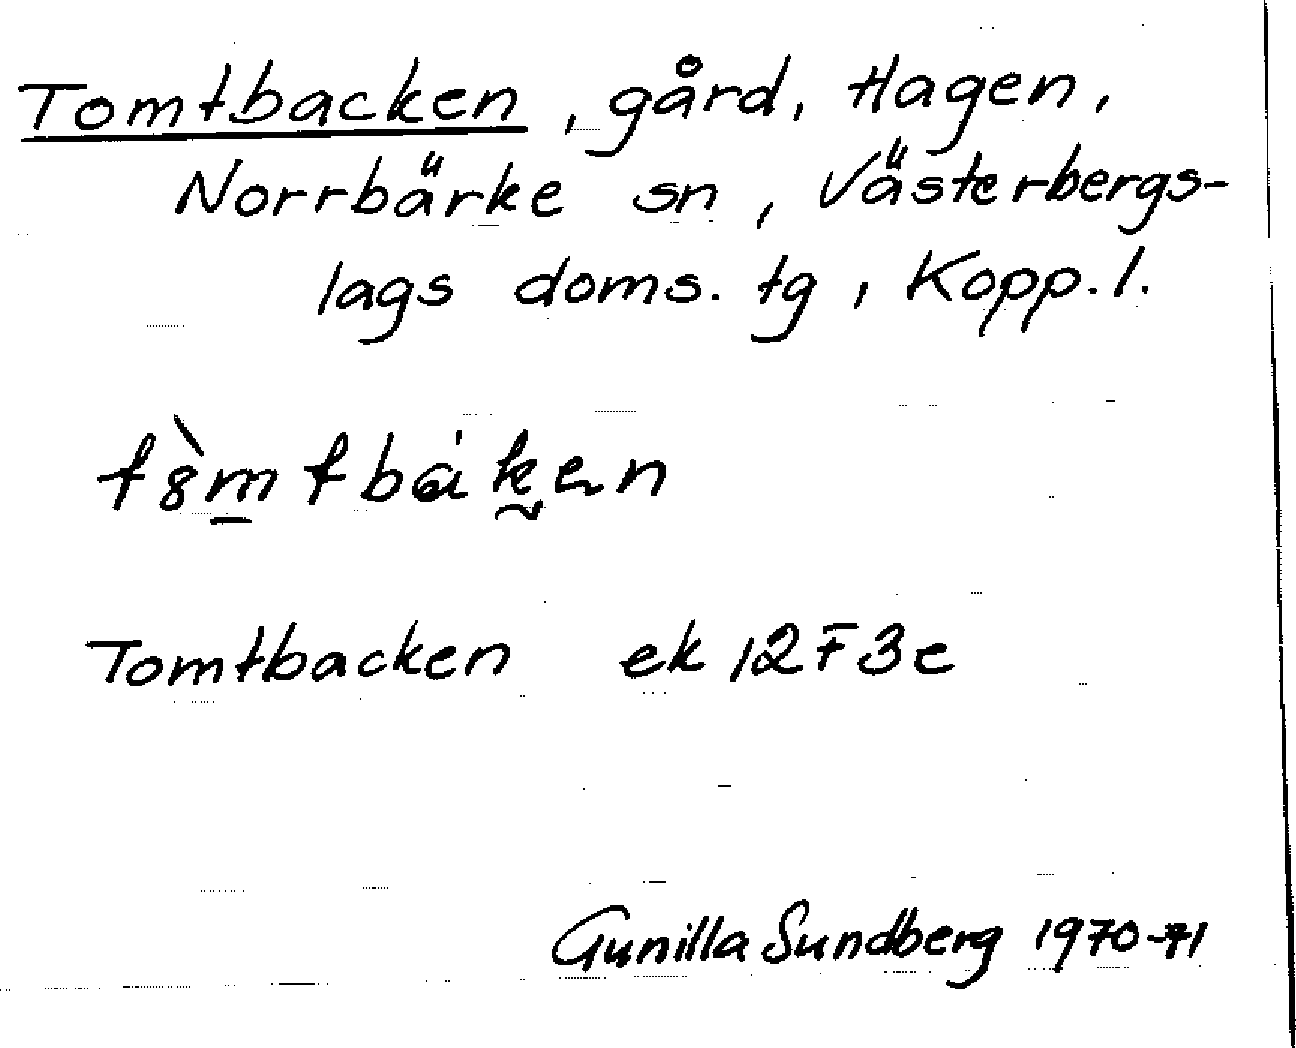 Tomtbacken, gård, Hagen,
Norrbärke sn, Västerbergs-
lags doms. tg, Kopp. l.
Tomtbacken ek 12F3e
Gunilla Sundberg 1970-71